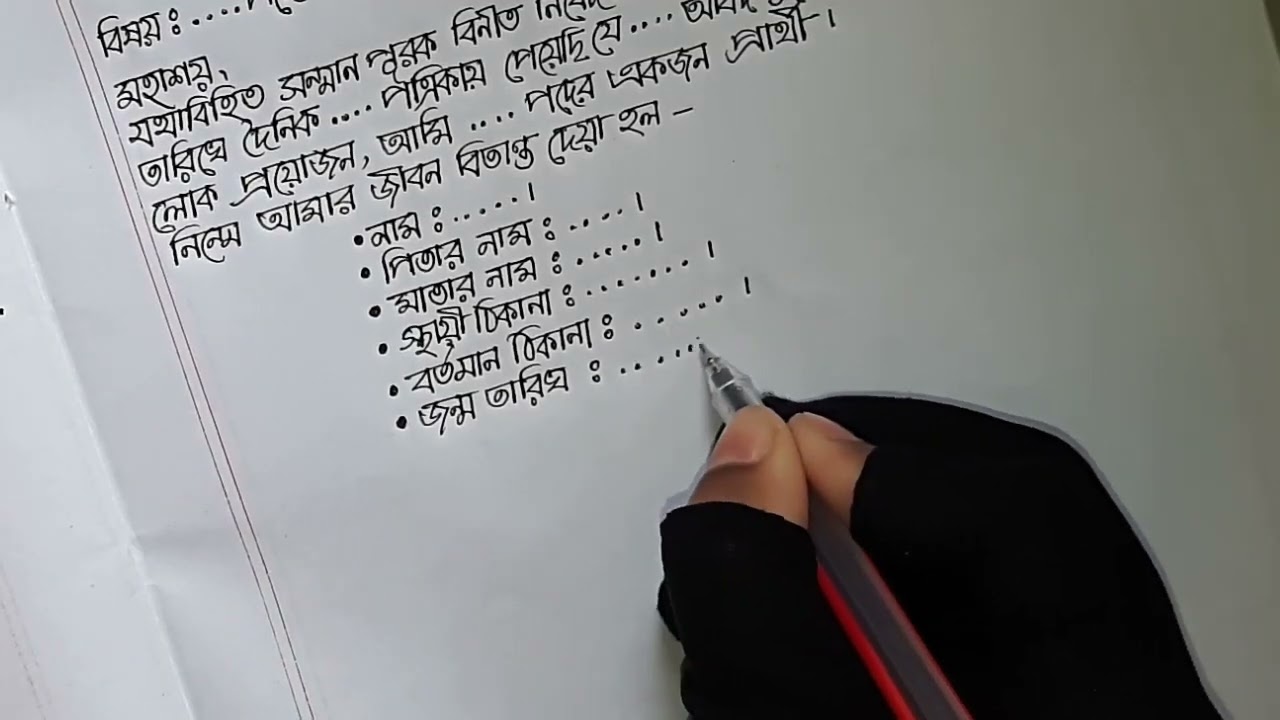 বিষয় : ....
মহাশয়,
যথাবিহিত সন্মান পূরক বিনীত
তারিখে দৈনিক .... পত্রিকায় পেয়েছি যে ....
লোক প্রয়োজন, আমি .... পদের একজন প্রার্থী।
নিম্মে আমার জীবন বিতান্ত দেয়া হল –
• নাম : .....।
• পিতার নাম : ....।
• মাতার নাম : .....।
• স্থায়ী ঠিকানা : .......।
• বর্তমান ঠিকানা : ......।
• জন্ম তারিখ : ......